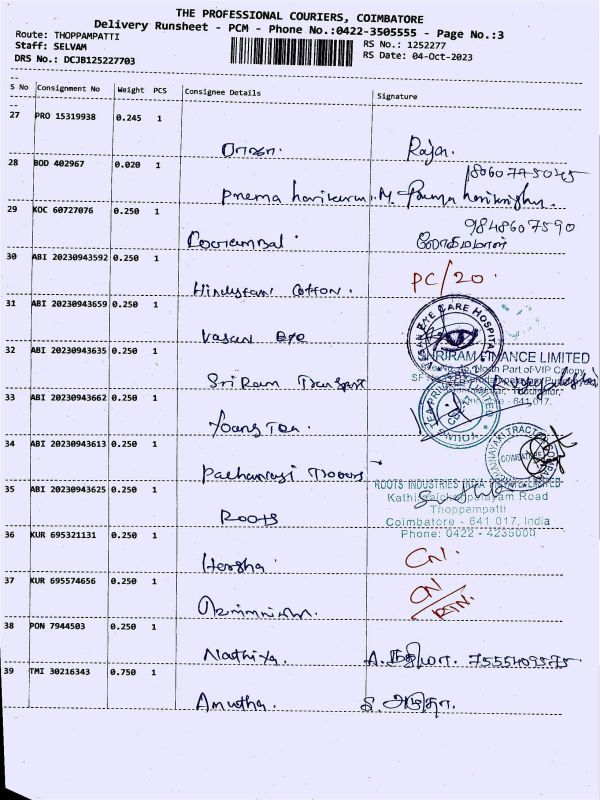 THE PROFESSIONAL COURIERS, COIMBATORE
Delivery Runsheet - PCM - Phone No.:0422-3505555 - Page No.:3
Route: THOPPAMPATTI
RS No.: 1252277
Staff: SELVAM
RS Date: 04-Oct-2023
DRS No.: DCJB125227703
S No Consignment No Weight PCS Consignee Details Signature
27 PRO 15319938 0.245 1
ராஜா. Raja.
28 BOD 402967 0.020 1
Prema harikaran.M
29 KOC 60727076 0.250 1
9848607590
30 ABI 20230943592 0.250 1
Hindustan Cotton. PC/20.
31 ABI 20230943659 0.250 1
Vasan eye
EYE CARE HOSPITAL
32 ABI 20230943635 0.250 1
SRIRAM FINANCE LIMITED
North Part of VIP Colony
SriRam Transport
33 ABI 20230943662 0.250 1
641 017.
Young Tea
34 ABI 20230943613 0.250 1
35 ABI 20230943625 0.250 1
ROOTS INDUSTRIES INDIA PRIVATE LIMITED
Thoppampatti
Roots
Coimbatore - 641 017, India
Phone: 0422 - 4235000
36 KUR 695321131 0.250 1
Harsha CN.
37 KUR 695574656 0.250 1
CN/RTN.
38 PON 7944503 0.250 1
Nathiya.
39 TMI 30216343 0.750 1
Amutha.